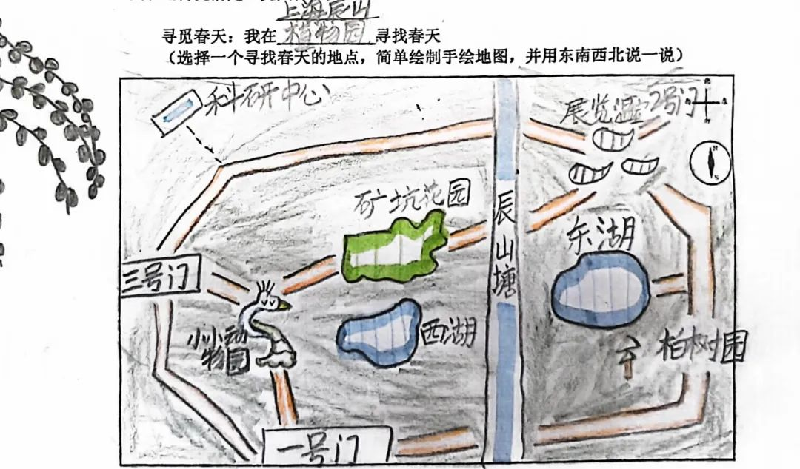 上海辰山
寻觅春天：我在植物园寻找春天
（选择一个寻找春天的地点，简单绘制手绘地图，并用东南西北说一说）
科研中心
展览温室
2号门
矿坑花园
辰山塘
东湖
三号门
小小动物园
西湖
柏树园
一号门